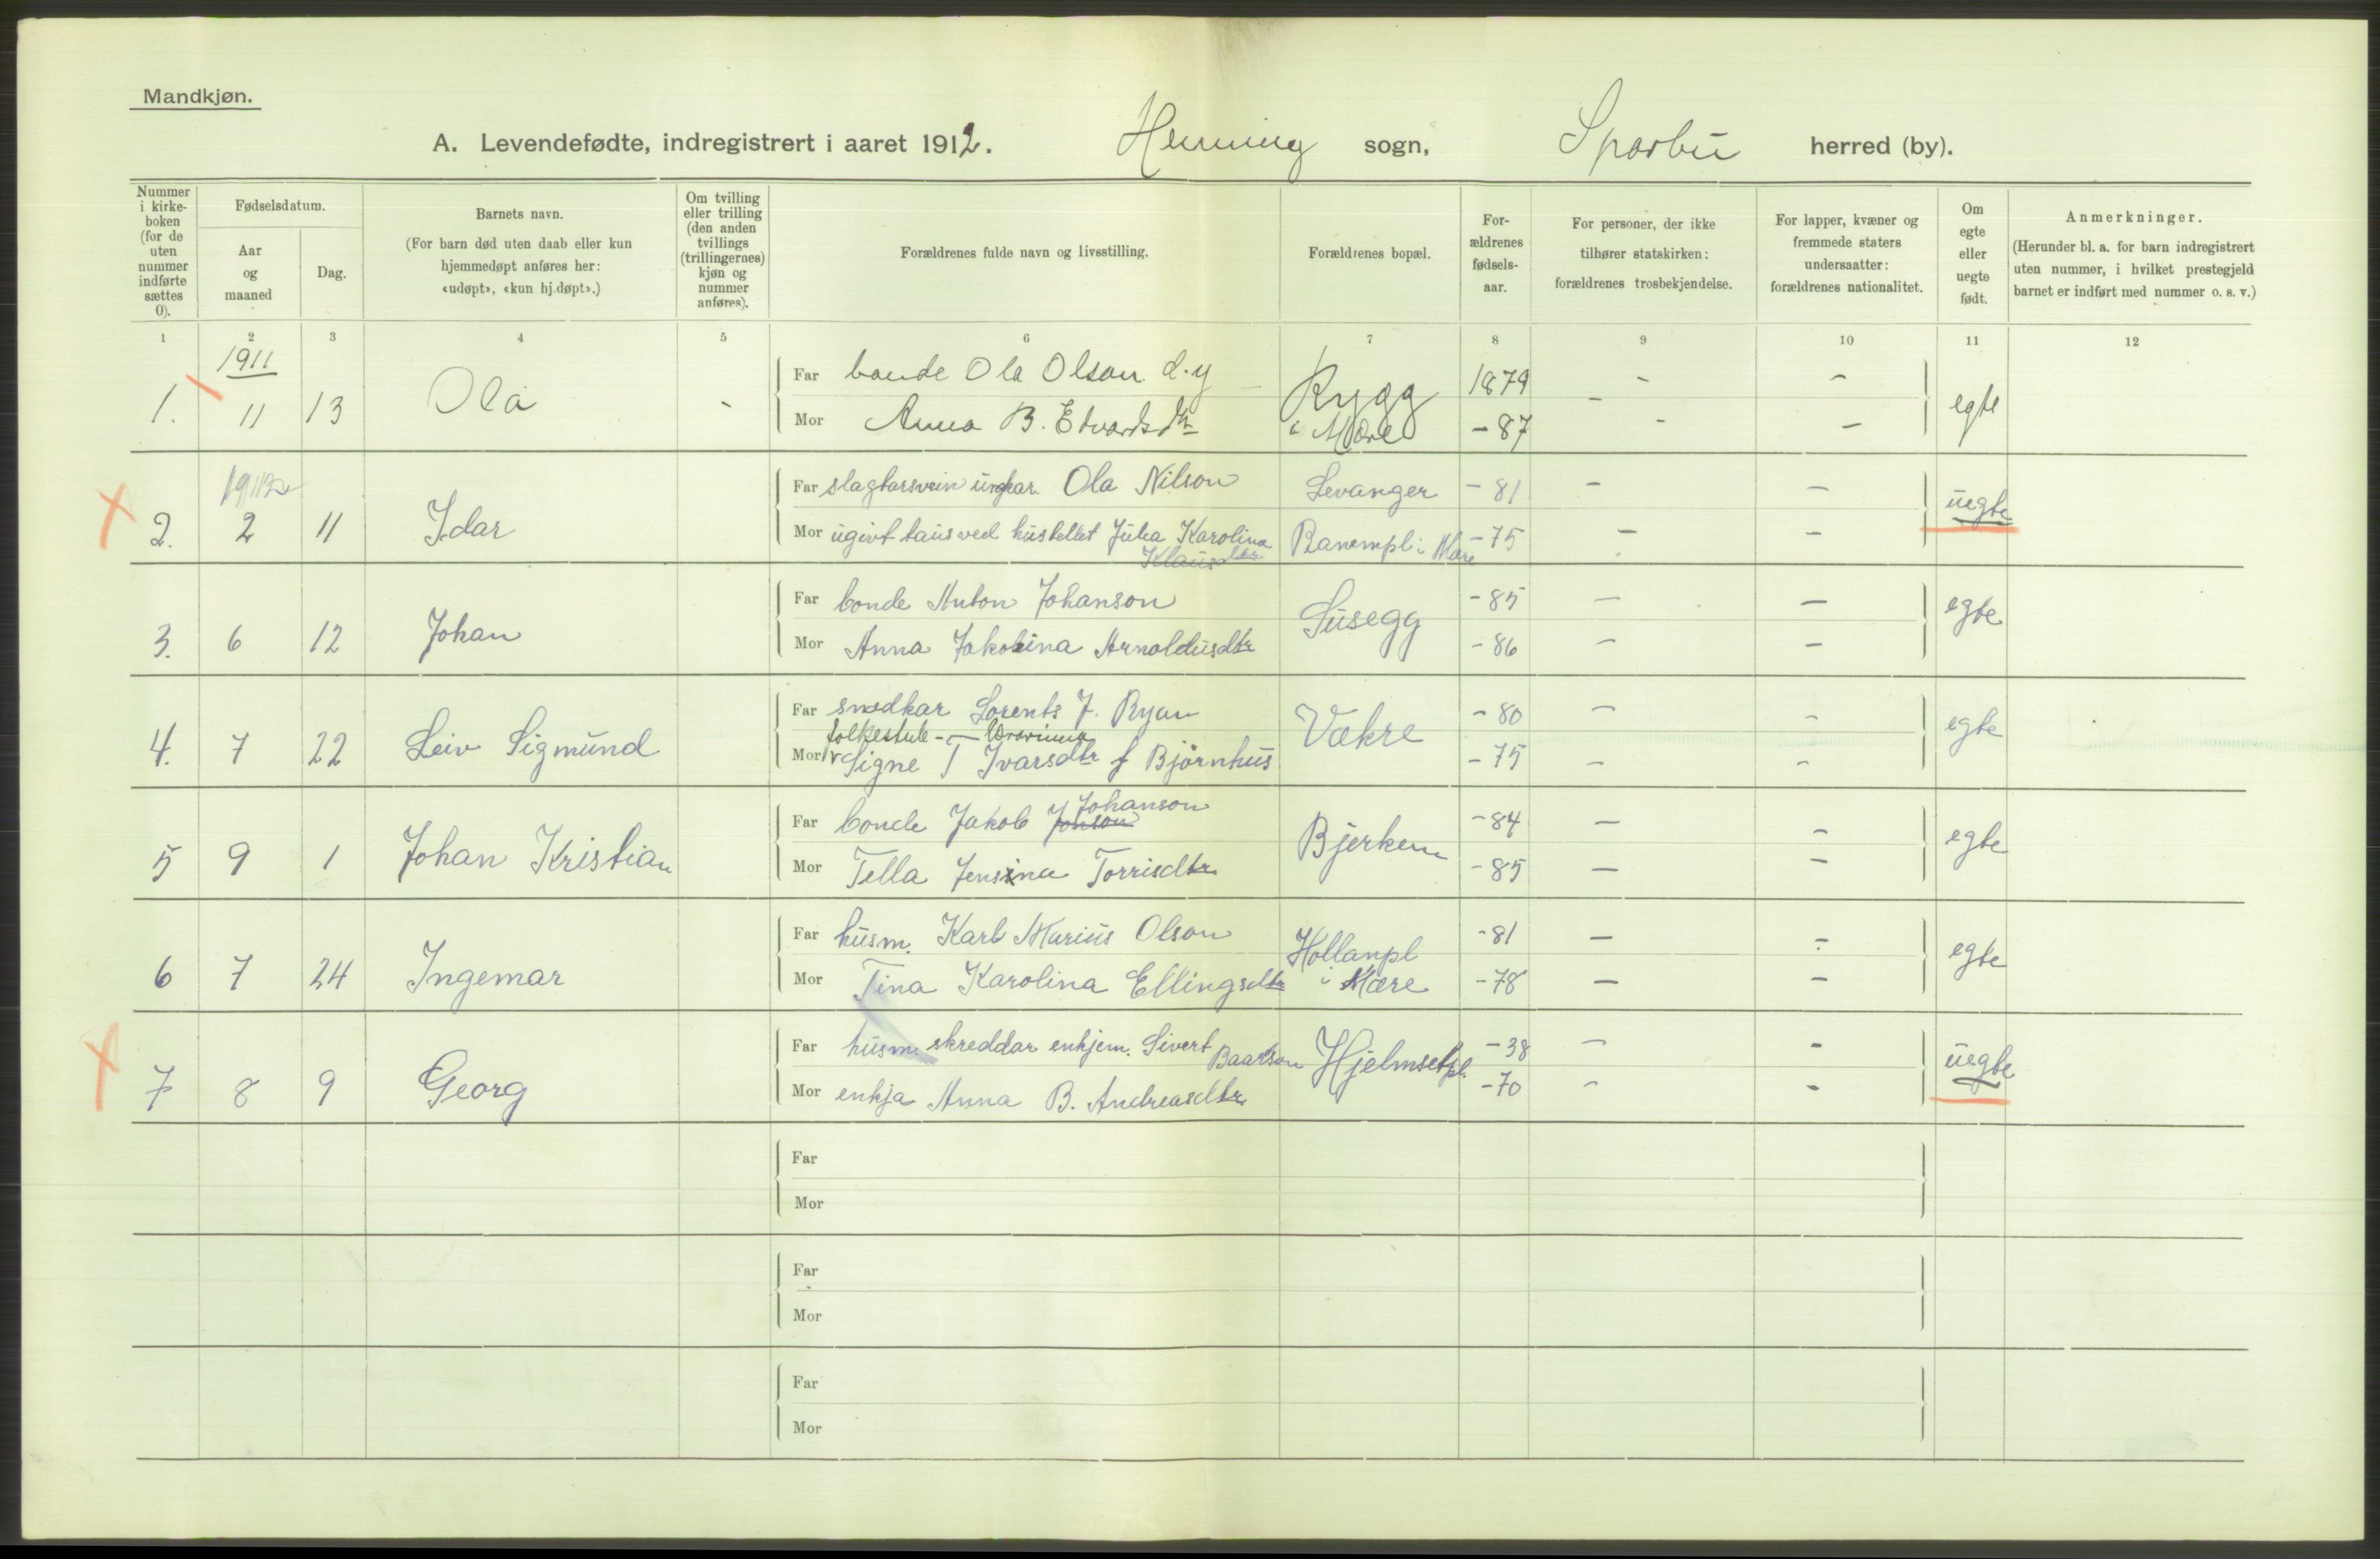 Mandkjøn.
A. Levendefødte, indregistrert i aaret 1912. Henning sogn, Sparbu herred (by).
Nummer i kirke-boken (for de uten nummer indførte sættes 0).
Fødselsdatum.
Aar og maaned
Dag.
Barnets navn.
(For barn død uten daab eller kun hjemmedøpt anføres her: «udøpt», «kun hj.døpt».)
Om tvilling eller trilling (den anden tvillings (trillingernes) kjøn og nummer anføres).
Forældrenes fulde navn og livsstilling.
Forældrenes bopæl.
For-ældrenes fødsels-aar.
For personer, der ikke tilhører statskirken: forældrenes trosbekjendelse.
For lapper, kvæner og fremmede staters undersaatter: forældrenes nationalitet.
Om egte eller uegte født.
Anmerkninger.
(Herunder bl. a. for barn indregistrert uten nummer, i hvilket prestegjeld barnet er indført med nummer o. s. v.)
1 2 3 4 5 6 7 8 9 10 11 12
1911
1. 11 13 Ola - Far bonde Ola Olson d.y Rygg 1879 - - - egte
Mor Anna B. Edvardsdtr i Mære - 87 - -
1912
2. 2 11 Idar Far slagtarsvein ungkar. Ola Nilson Levanger - 81 - - uegte
Mor ugivt taus ved hustellet Julia Karolina Ranempl i Mære - 75 - -
Klausdtr
3. 6 12 Johan Far bonde Anton Johanson Susegg - 85 - - egte
Mor Anna Jakobina Arnoldusdtr - 86 - -
4. 7 22 Leiv Sigmund Far snedkar Lorents J. Ryan Vækre - 80 - - egte
folkeskule- lærarinna
Mor Signe T Ivarsdtr f Bjørnhus - 75 - -
Johanson
5 9 1 Johan Kristian Far bonde Jakob Jonson Bjerkem - 84 - - egte
Mor Tella Jensina Torrisdtr - 85 - -
6 7 24 Ingemar Far husm. Karl Marius Olson Hollanpl - 81 - - egte
Mor Tina Karolina Ellingsdtr i Mære - 78 - -
7 8 9 Georg Far husm. skreddar enkjem. Sivert Baardson Hjelmsetpl. - 38 - - uegte
Mor enkja Anna B. Andreasdtr - 70 - -
Far
Mor
Far
Mor
Far
Mor